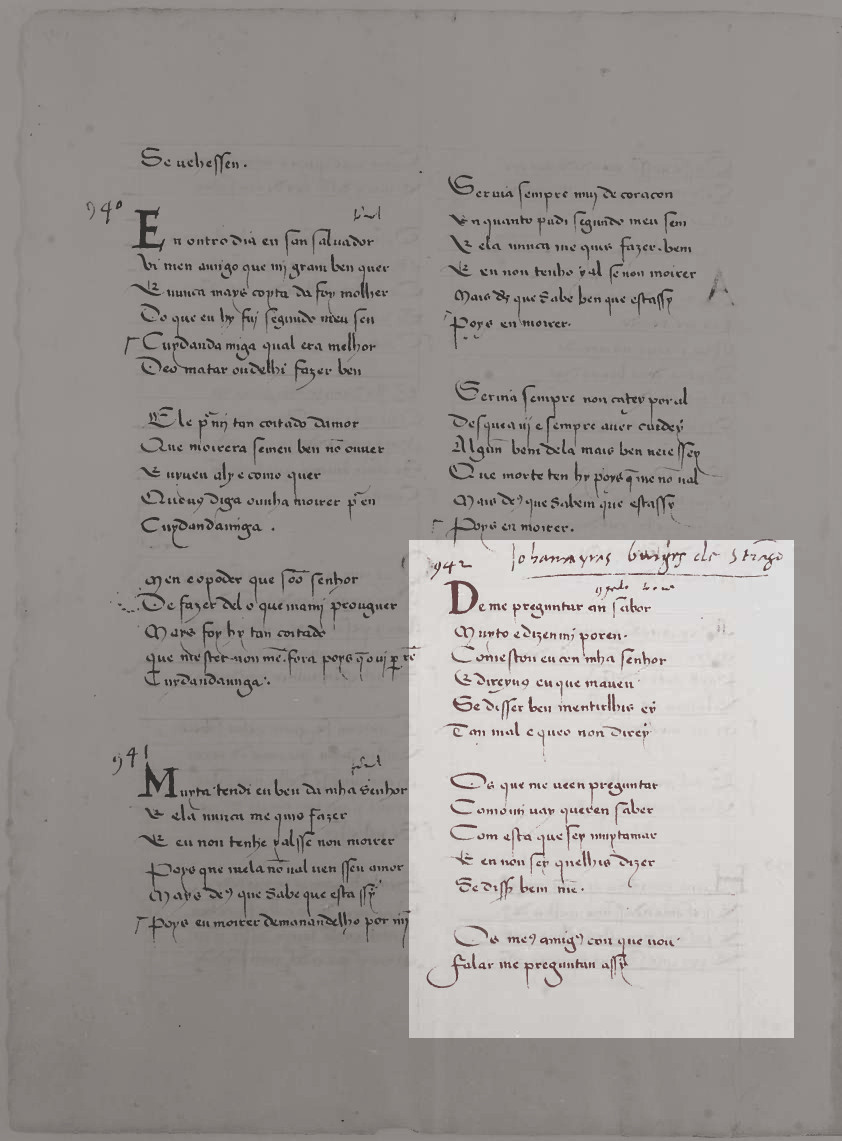 Se uehessen.
940
En outro dia en san saluador
Vi meu amigo que mi gram ben quer
E nunca mays coyta da foy molher
Do que eu hy fuj segundo meu sen
Cuydanda miga qual era melhor
Deo matar oudelhi fazer ben
Ele p̃ mj tan coitado damor
Que moirera senen ben nõ ouuer
E uyueu aly e como quer
Queuꝯ diga ounha moirer p̃ en
Cuydandamiga.
Men e o poder que sõo senhor
De fazer del o que mami prouguer
Mays foy hy tan coitado
que mester non mẽ fora poys q̃ o ui p̃ rẽ
Cuydandamiga.
941
Muyta tendi eu ben da mha senhor
E ela nunca me quis fazer
E eu non tenhe yalsse non moirer
Poys que mela nõ ual nen sseu amor
Mays deꝯ que sabe que esta ssy
Poys eu moirer demanandelho por mj̃
Seruia sempre muj de coracon
En quanto pudi segundo meu sem
E ela nunca me quis fazer ben
E eu non tenho yal se non moirer
Mais deꝯ que sabe ben que estassy
Poys eu moirer.
A
Seruia sempre non catey por al
Desquea uj e sempre auer cuidey
Algun bem dela mais ben ueie ssey
Que morte ten hy poys q̃ me nõ ual
Mais deꝯ que sabem que estassy
Poys eu moirer.
942 Johanayras burgꝯs de
De me preguntar an sabor
Muyto e dizen mi poren.
Comestou eu con mha senhor
E direyuꝯ eu que mauen
Se disser ben mentirlhis ey
Tan mal e queo non direy
Os que me ueen preguntar
Comomi uay queren saber
Com esta que sey muytamar
E eu non sey quelhis dizer
Se diss̃ bem mẽ.
Os meꝯ amigꝯ con que uou
falar me preguntan assy